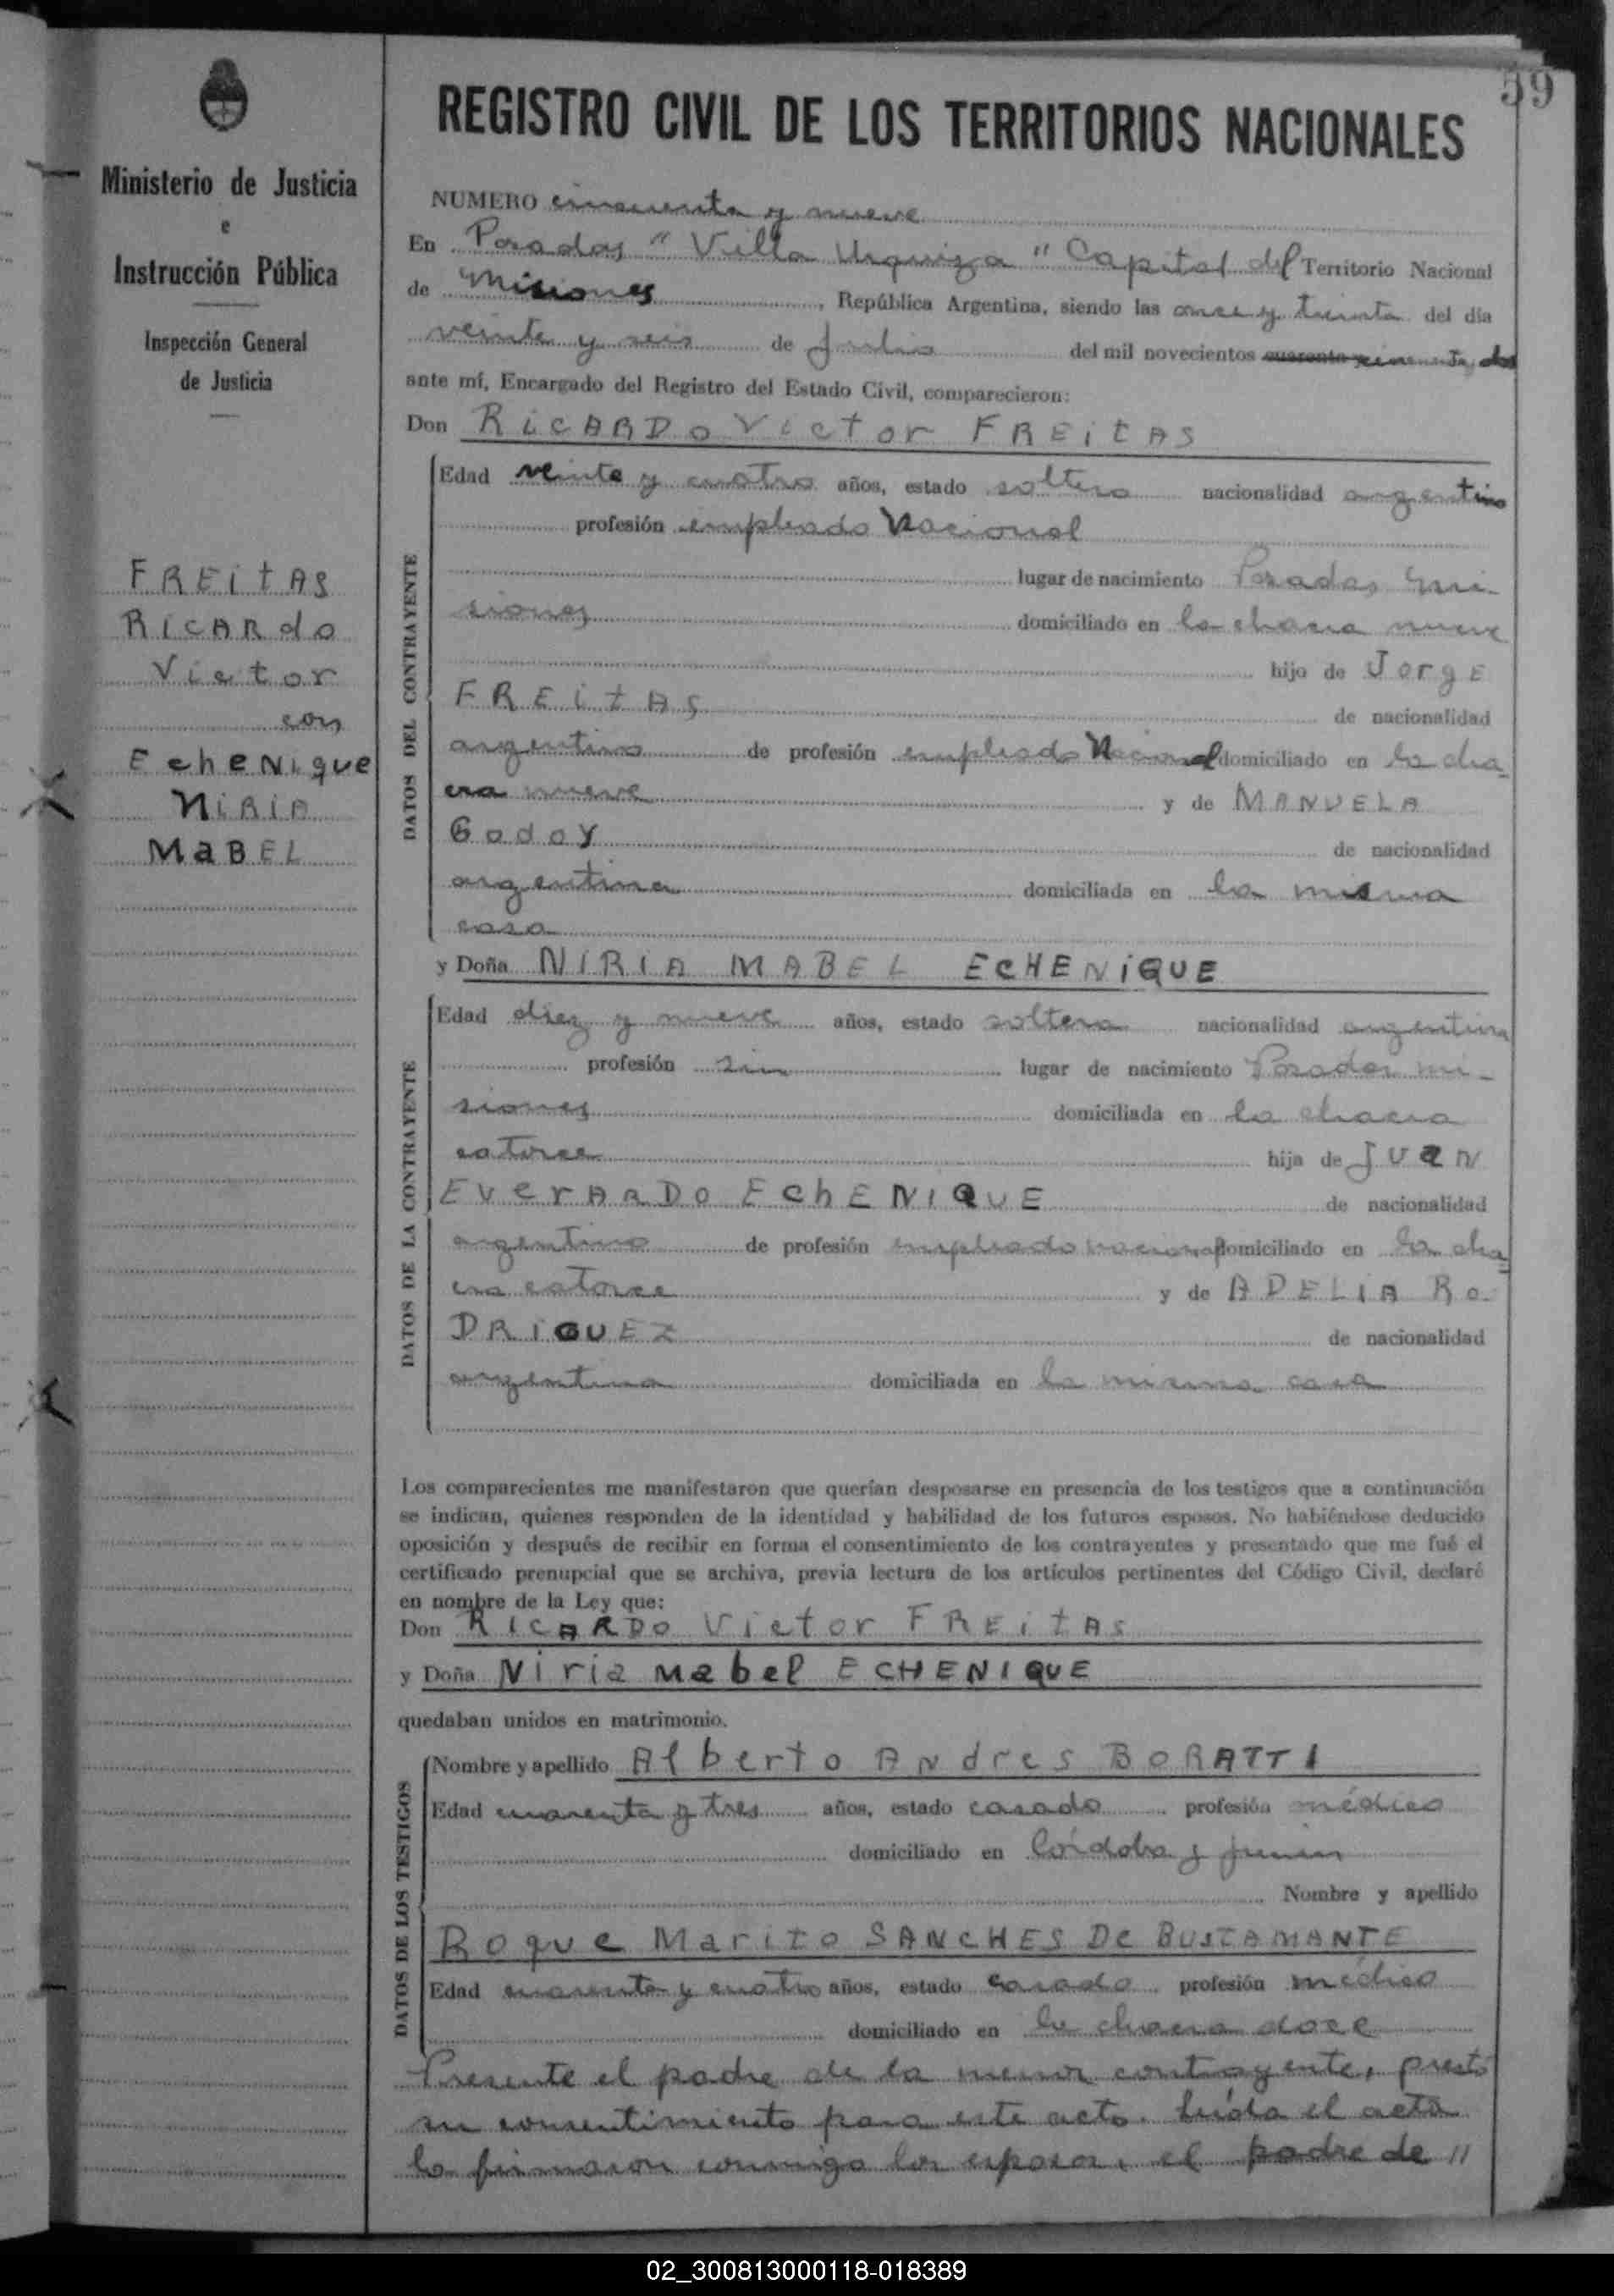 59
REGISTRO CIVIL DE LOS TERRITORIOS NACIONALES
Ministerio de Justicia
e
Instrucción Pública
Inspección General
de Justicia
FREitAS
RicARdo
Victor
con
EcheNique
NiRiA
MaBEL
NUMERO cincuenta y nueve
En Posadas "Villa Urquiza" Capital del Territorio Nacional
de Misiones, República Argentina, siendo las once y treinta del día
veinte y seis de Julio del mil novecientos cuarenta y cincuenta y dos
ante mí, Encargado del Registro del Estado Civil, comparecieron:
Don RicARDo Victor FREitAS
DATOS DEL CONTRAYENTE
Edad veinte y cuatro años, estado soltero nacionalidad argentino
profesión empleado Nacional
lugar de nacimiento Posadas Mi-
siones domiciliado en la chacra nueve
hijo de JorgE
FREitAS de nacionalidad
argentino de profesión empleado Nacional domiciliado en la cha-
cra nueve y de MANUELA
GodoY de nacionalidad
argentina domiciliada en la misma
casa
y Doña NIRIA MABEL ECHENiQUE
DATOS DE LA CONTRAYENTE
Edad diez y nueve años, estado soltera nacionalidad argentina
profesión sin lugar de nacimiento Posadas mi-
siones domiciliada en la chacra
catorce hija de JUaN
EverARDo EchENIQUE de nacionalidad
argentino de profesión empleado nacional domiciliado en la cha-
cra catorce y de ADELiA Ro-
DRiGUEZ de nacionalidad
argentina domiciliada en la misma casa
Los comparecientes me manifestaron que querían desposarse en presencia de los testigos que a continuación
se indican, quienes responden de la identidad y habilidad de los futuros esposos. No habiéndose deducido
oposición y después de recibir en forma el consentimiento de los contrayentes y presentado que me fué el
certificado prenupcial que se archiva, previa lectura de los artículos pertinentes del Código Civil, declaré
en nombre de la Ley que:
Don RICARDo Victor FREitAS
y Doña Niria Mabel ECHENIQUE
quedaban unidos en matrimonio.
DATOS DE LOS TESTIGOS
Nombre y apellido Alberto ANdres BORATTI
Edad cuarenta y tres años, estado casado profesión médico
domiciliado en Córdoba y Junín
Nombre y apellido
Roque Marito SANCHES De BUSTAMANTE
Edad cuarenta y cuatro años, estado casado profesión médico
domiciliado en la chacra doce
Presente el padre de la menor contrayente, prestó
su consentimiento para este acto. Leída el acta
la firmaron conmigo los esposos, el padre de //
02_300813000118-018389